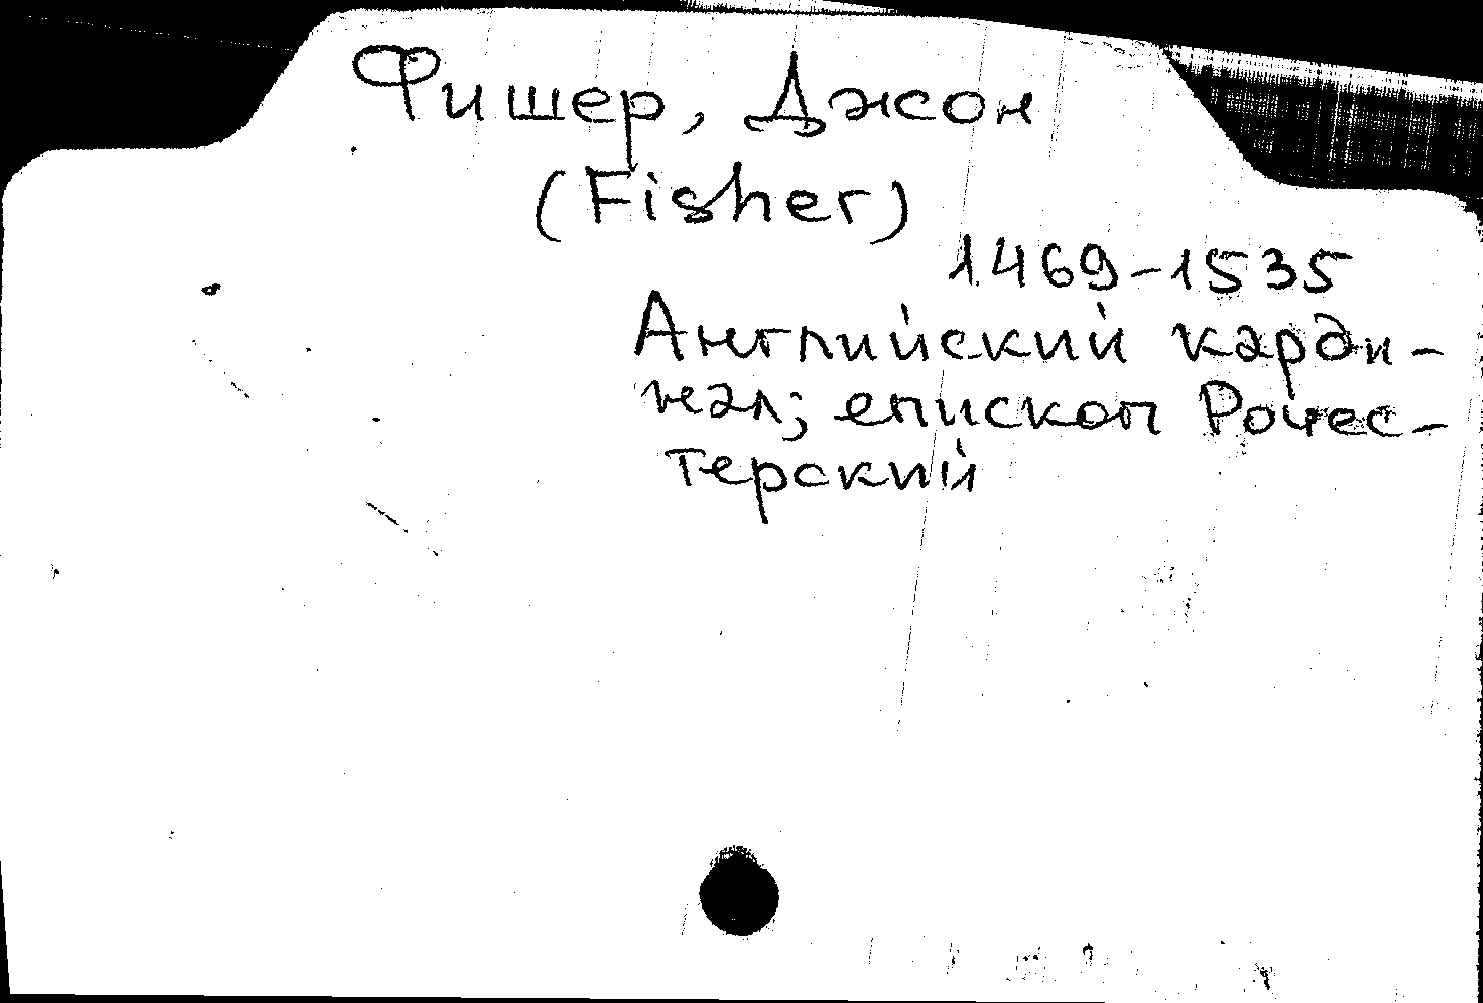 Фишер, Джон
(Fisher)
1469-1535
Английский карди-
нал; епископ Рочес-
терский